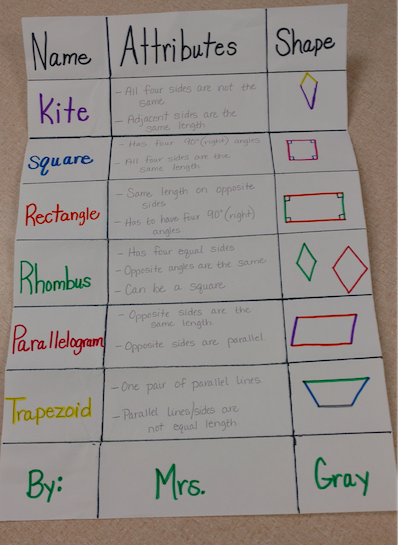 Name Attributes Shape
Kite
- All four sides are not the
same
- Adjacent sides are the
same length
Square
- Has four 90°(right) angles
- All four sides are the
same length
Rectangle
- Same length on opposite
sides
- Has to have four 90°(right)
angles
Rhombus
- Has four equal sides
- Opposite angles are the same
- Can be a square
Parallelogram
- Opposite sides are the
same length
- Opposite sides are parallel
Trapezoid
- One pair of parallel lines
- Parallel lines/sides are
not equal length
By: Mrs. Gray